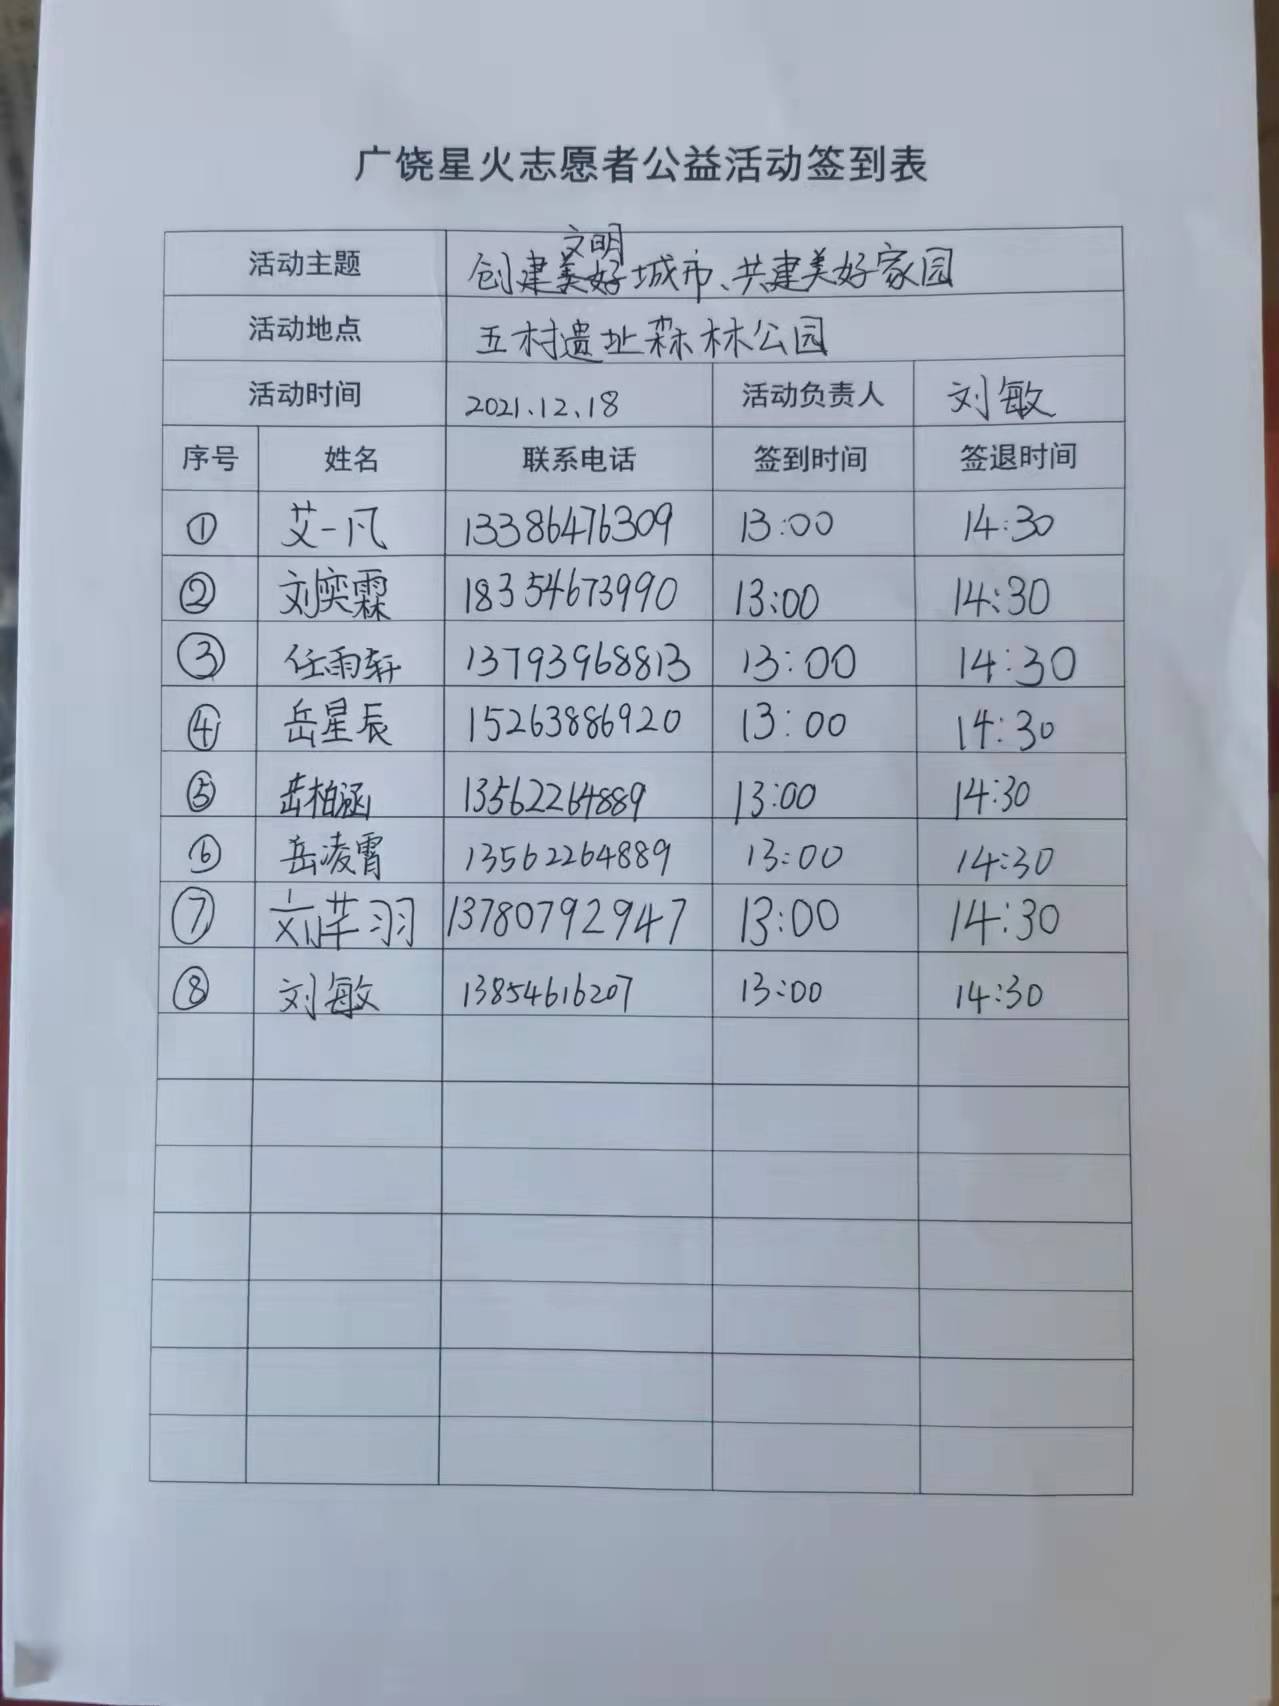 广饶星火志愿者公益活动签到表
活动主题 创建文明城市、共建美好家园
活动地点 五村遗址森林公园
活动时间 2021.12.18 活动负责人 刘敏
序号 姓名 联系电话 签到时间 签退时间
① 艾一凡 13386476309 13:00 14:30
② 刘奕霖 18354673990 13:00 14:30
③ 任雨轩 13793968813 13:00 14:30
④ 岳星辰 15263886920 13:00 14:30
⑤ 岳柏涵 13562264889 13:00 14:30
⑥ 岳凌霄 13562264889 13:00 14:30
⑦ 刘芊羽 13780792947 13:00 14:30
⑧ 刘敏 13854616207 13:00 14:30